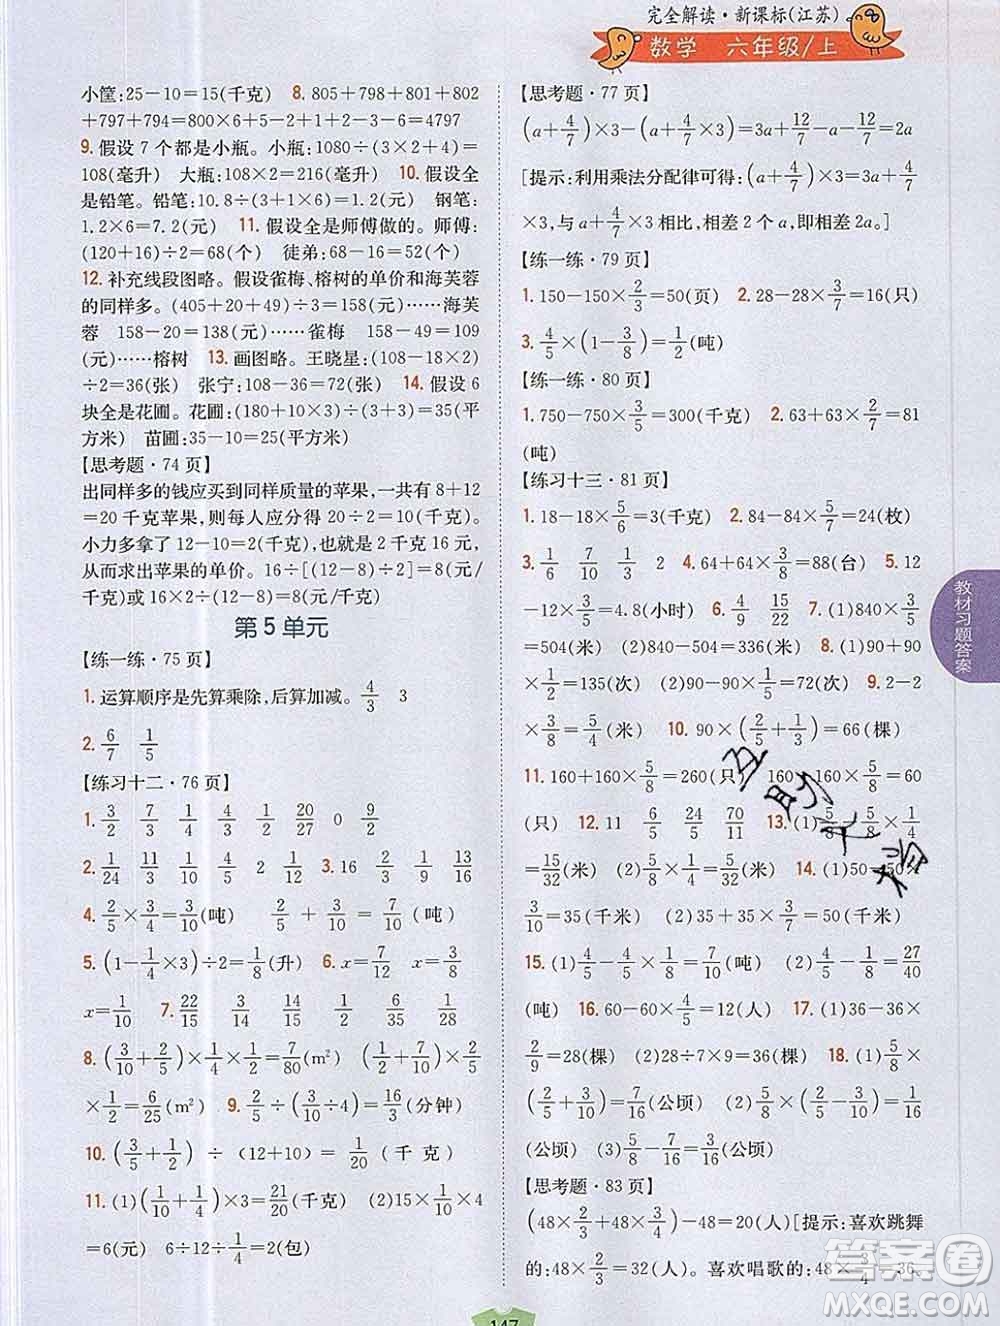 完全解读·新课标(江苏)
数学 六年级/上
小筐:25-10=15(千克) 8. 805+798+801+802
+797+794=800×6+5-2+1+2-3-6=4797
9. 假设 7 个都是小瓶。小瓶:1080÷(3×2+4)=
108(毫升) 大瓶:108×2=216(毫升) 10. 假设全
是铅笔。铅笔:10.8÷(3+1×6)=1.2(元) 钢笔:
1.2×6=7.2(元) 11. 假设全是师傅做的。师傅:
(120+16)÷2=68(个) 徒弟:68-16=52(个)
12. 补充线段图略。假设雀梅、榕树的单价和海芙蓉
的同样多。(405+20+49)÷3=158(元)……海芙
蓉 158-20=138(元)……雀梅 158-49=109
(元)……榕树 13. 画图略。王晓星:(108-36)
÷2=36(张) 张宁:108-36=72(张) 14. 假设 6
块全是花圃。花圃:(180+10×3)÷(3+3)=35(平
方米) 苗圃:35-10=25(平方米)
【思考题·74 页】
出同样多的钱应买到同样质量的苹果,一共有 8+12
=20 千克苹果,则每人应分得 20÷2=10(千克)。
小力多拿了 12-10=2(千克),也就是 2 千克 16 元,
从而求出苹果的单价。16÷[(12-8)÷2]=8(元/
千克)或 16×2÷(12-8)=8(元/千克)
第 5 单元
【练一练·75 页】
1. 运算顺序是先算乘除,后算加减。4/3 3
2. 6/7 1/5
【练习十二·76 页】
1. 3/2 7/12 3/4 1/4 1/2 20/27 0 9/2
2. 1/24 13/11 1/4 2 3. 16 2/5 4/5 13/15
4. 2/5×3/4=3/10(吨) 2/5+3/10=7/10(吨)
5. (1-1/4×3)÷2=1/8(升) 6. x=7/12 x=2/5
x=1/10 7. 22/15 7/15 9/10 3/10
8. (3/10+2/5)×1/4×1/2=7/80(m²) (1/2+7/10)×2/5
×1/2=6/25(m²) 9. 2/5÷(3/10÷4)=16/3(分钟)
10. (3/5+1/2)÷(12+10)=1/20(千克)
11. (1)(1/10+1/4)×3=21/20(千克) (2)15×1/10×4
=6(元) 6÷12÷1/4=2(包)
【思考题·77 页】
(a+4/7)×3-(a+4/7×3)=3a+12/7-a-12/7=2a
[提示:利用乘法分配律可得:(a+4/7)×3=a×3+4/7
×3,与 a+4/7×3 相比,相差 2 个 a,即相差 2a。]
【练一练·79 页】
1. 150-150×2/3=50(页) 2. 28-28×3/7=16(只)
3. 4/5×(1-3/8)=1/2(吨)
【练一练·80 页】
1. 750-750×3/5=300(千克) 2. 63+63×2/7=81
(吨)
【练习十三·81 页】
1. 18-18×5/6=3(千克) 2. 84-84×5/7=24(枚)
3. 1/6 7/10 1/3 2 4. 64+64×3/8=88(台) 5. 12
-12×3/5=4.8(小时) 6. 9/4 15/22 7. (1)840×3/5
=504(米) (2)840-504=336(米) 8. (1)90+90
×1/2=135(次) (2)90-90×1/5=72(次) 9. 2-2
×3/8=5/4(米) 10. 90×(2/5+1/3)=66(棵)
11. 160+160×5/8=260(只) 160-160×5/8=60
(只) 12. 11 6/5 24/5 70/11 13. (1)5/8-5/8×1/4
=15/32(米) (2)5/8+5/8×1/5=3/4(米) 14. (1)50-50×
3/10=35(千米) (2)35+35×3/7=50(千米)
15. (1)4/5-4/5×1/8=7/10(吨) (2)4/5-1/8=27/40
(吨) 16. 60-60×4/5=12(人) 17. (1)36-36×
2/9=28(棵) (2)28÷7×9=36(棵) 18. (1)5/8×
(2/5+3/10)=7/16(公顷) (2)5/8×(2/5-3/10)=1/16
(公顷) (3)5/8-7/16=3/16(公顷)
【思考题·83 页】
(48×2/3+48×3/4)-48=20(人)[提示:喜欢跳舞
的:48×2/3=32(人)。喜欢唱歌的:48×3/4=36。
教材习题答案
互助文档
147
答案圈
MXQE.COM